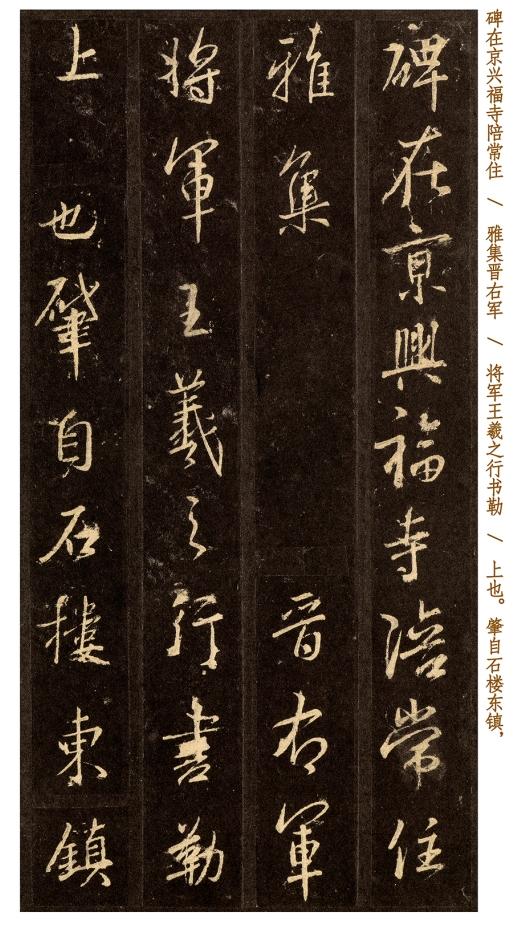 碑在京兴福寺陪常住 / 雅集晋右军 / 将军王羲之行书勒 / 上也。肇自石楼东镇，
碑在京興福寺陪常住
雅集 晋右軍
将軍王羲之行書勒
上也肇自石樓東鎮